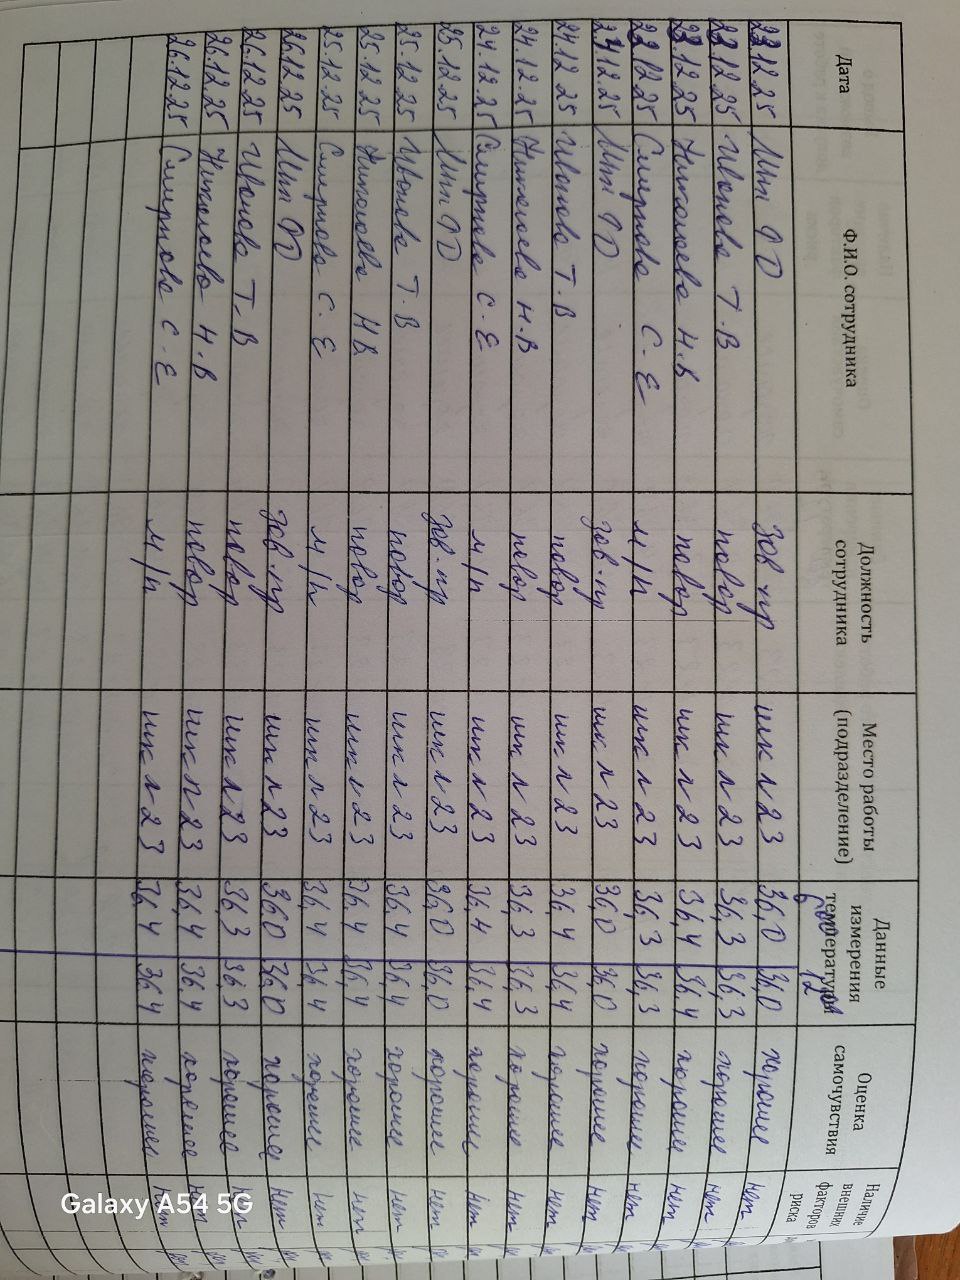 Дата Ф.И.О. сотрудника Должность сотрудника Место работы (подразделение) Данные измерения температуры Оценка самочувствия Наличие внешних факторов риска
12
23.12.25 зав. пр шк л 23 36,0 36,0 хорошее нет
23.12.25 Иванова Т. В повар шк л 23 36,3 36,3 хорошее нет
23.12.25 Николаева Н.В повар шк л 23 36,4 36,4 хорошее нет
23.12.25 Смирнова С. Е м/п шк л 23 36,3 36,3 хорошее нет
24.12.25 зав. пр шк л 23 36,0 36,0 хорошее нет
24.12.25 Иванова Т. В повар шк л 23 36,4 36,4 хорошее нет
24.12.25 Николаева Н.В повар шк л 23 36,3 36,3 хорошее нет
24.12.25 Смирнова С. Е м/п шк л 23 36,4 36,4 хорошее нет
25.12.25 зав. пр шк л 23 36,0 36,0 хорошее нет
25.12.25 Иванова Т. В повар шк л 23 36,4 36,4 хорошее нет
25.12.25 Николаева Н В повар шк л 23 36,4 36,4 хорошее нет
25.12.25 Смирнова С. Е м/п шк л 23 36,4 36,4 хорошее нет
26.12.25 зав. пр шк л 23 36,0 36,0 хорошее нет
26.12.25 Иванова Т. В повар шк л 23 36,3 36,3 хорошее нет
26.12.25 Николаева Н.В повар шк л 23 36,4 36,4 хорошее нет
26.12.25 Смирнова С. Е м/п шк л 23 36,4 36,4 хорошее нет
Galaxy A54 5G